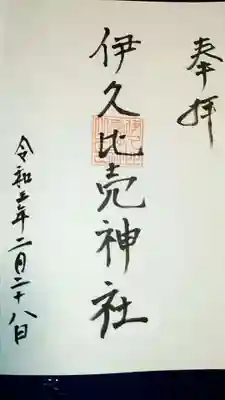 奉拝
伊久比売神社
令和五年二月二十八日